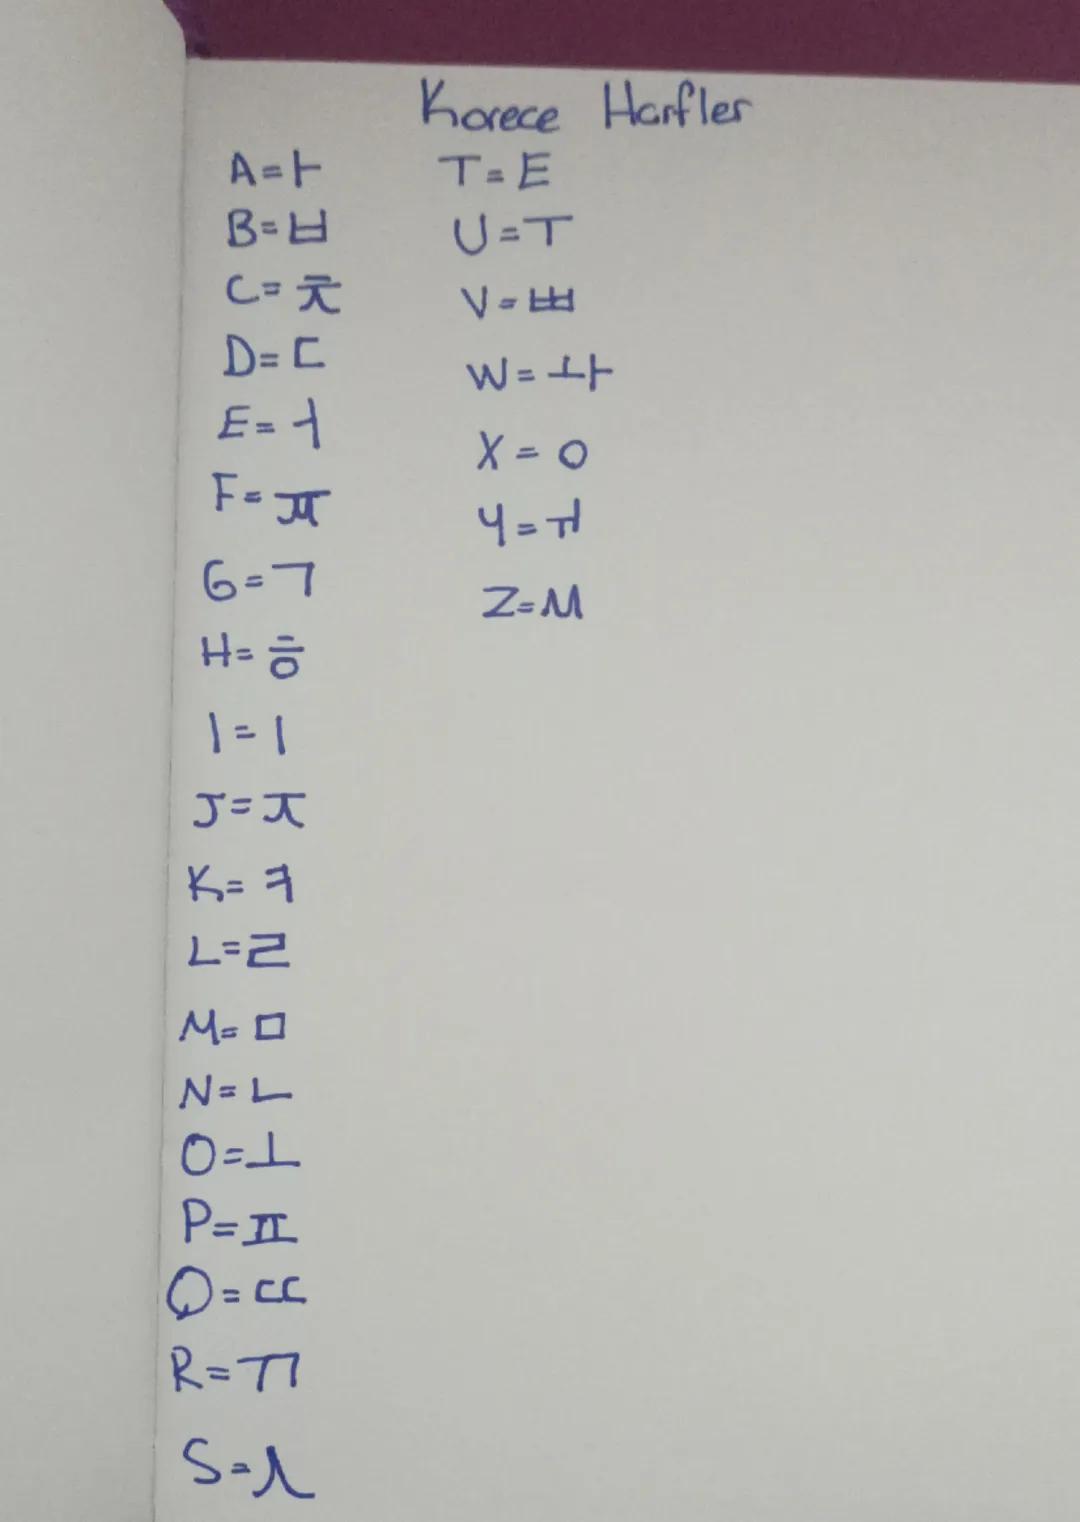 Korece Harfler
A=ㅏ
B=ㅂ
C=ㅊ
D=ㄷ
E=ㅓ
F=ㅠ
G=ㄱ
H=ㅎ
I=ㅣ
J=ㅈ
K=ㅋ
L=ㄹ
M=ㅁ
N=ㄴ
O=ㅗ
P=ㅍ
Q=ㄸ
R=ㄲ
S=ㅅ
T=E
U=ㅜ
V=ㅃ
W=ㅘ
X=ㅇ
Y=ㅝ
Z=ㅆ